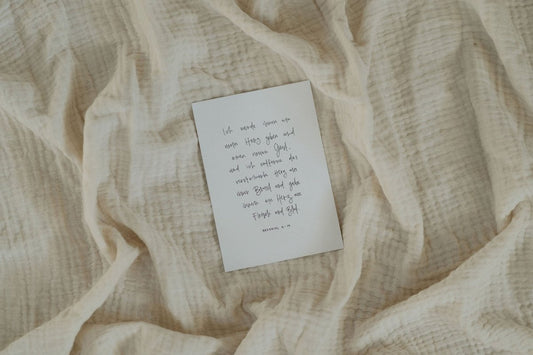 Ich werde ihnen ein
neues Herz geben und
einen neuen Geist,
und ich entferne das
versteinerte Herz aus
ihrer Brust und gebe
ihnen ein Herz aus
Fleisch und Blut.
HESEKIEL